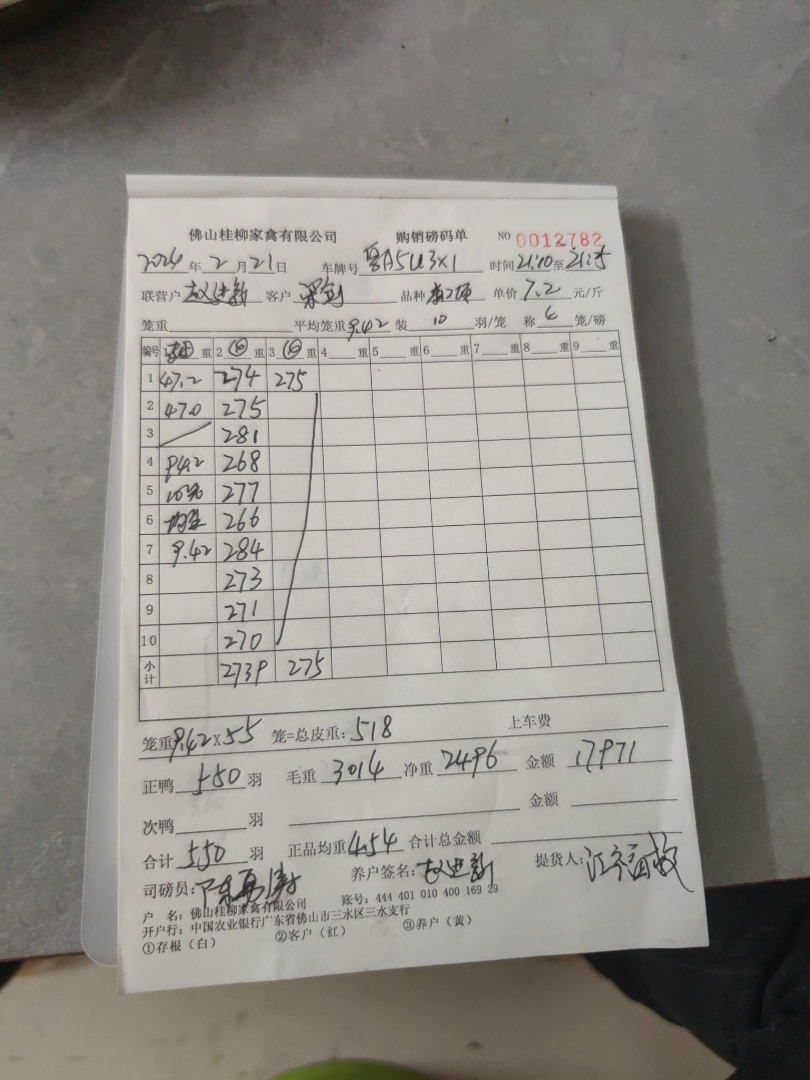 佛山桂柳家禽有限公司 购销磅码单 NO 0012782
2024年2月21日 车牌号 粤A5U3X1 时间21:10至21:25
联营户 赵进新 客户 梁剑 品种 单价7.2元/斤
笼重 平均笼重9.42 装10羽/笼 称 笼/磅
编号 1 重 2 重 3 重 4 重 5 重 6 重 7 重 8 重 9 重
1 47.2 274 275
2 47.0 275
3 281
4 94.2 268
5 10笼 277
6 均重 266
7 9.42 284
8 273
9 271
10 270
小计 2739 275
笼重9.42×55 笼=总皮重:518 上车费
正鸭550羽 毛重3014 净重2496 金额17971
次鸭 羽 金额
合计550羽 正品均重4.54 合计总金额
司磅员: 养户签名:赵进新 提货人:
户 名:佛山桂柳家禽有限公司 账号:444 401 010 400 169 29
开户行:中国农业银行广东省佛山市三水区三水支行
①存根(白) ②客户(红) ③养户(黄)